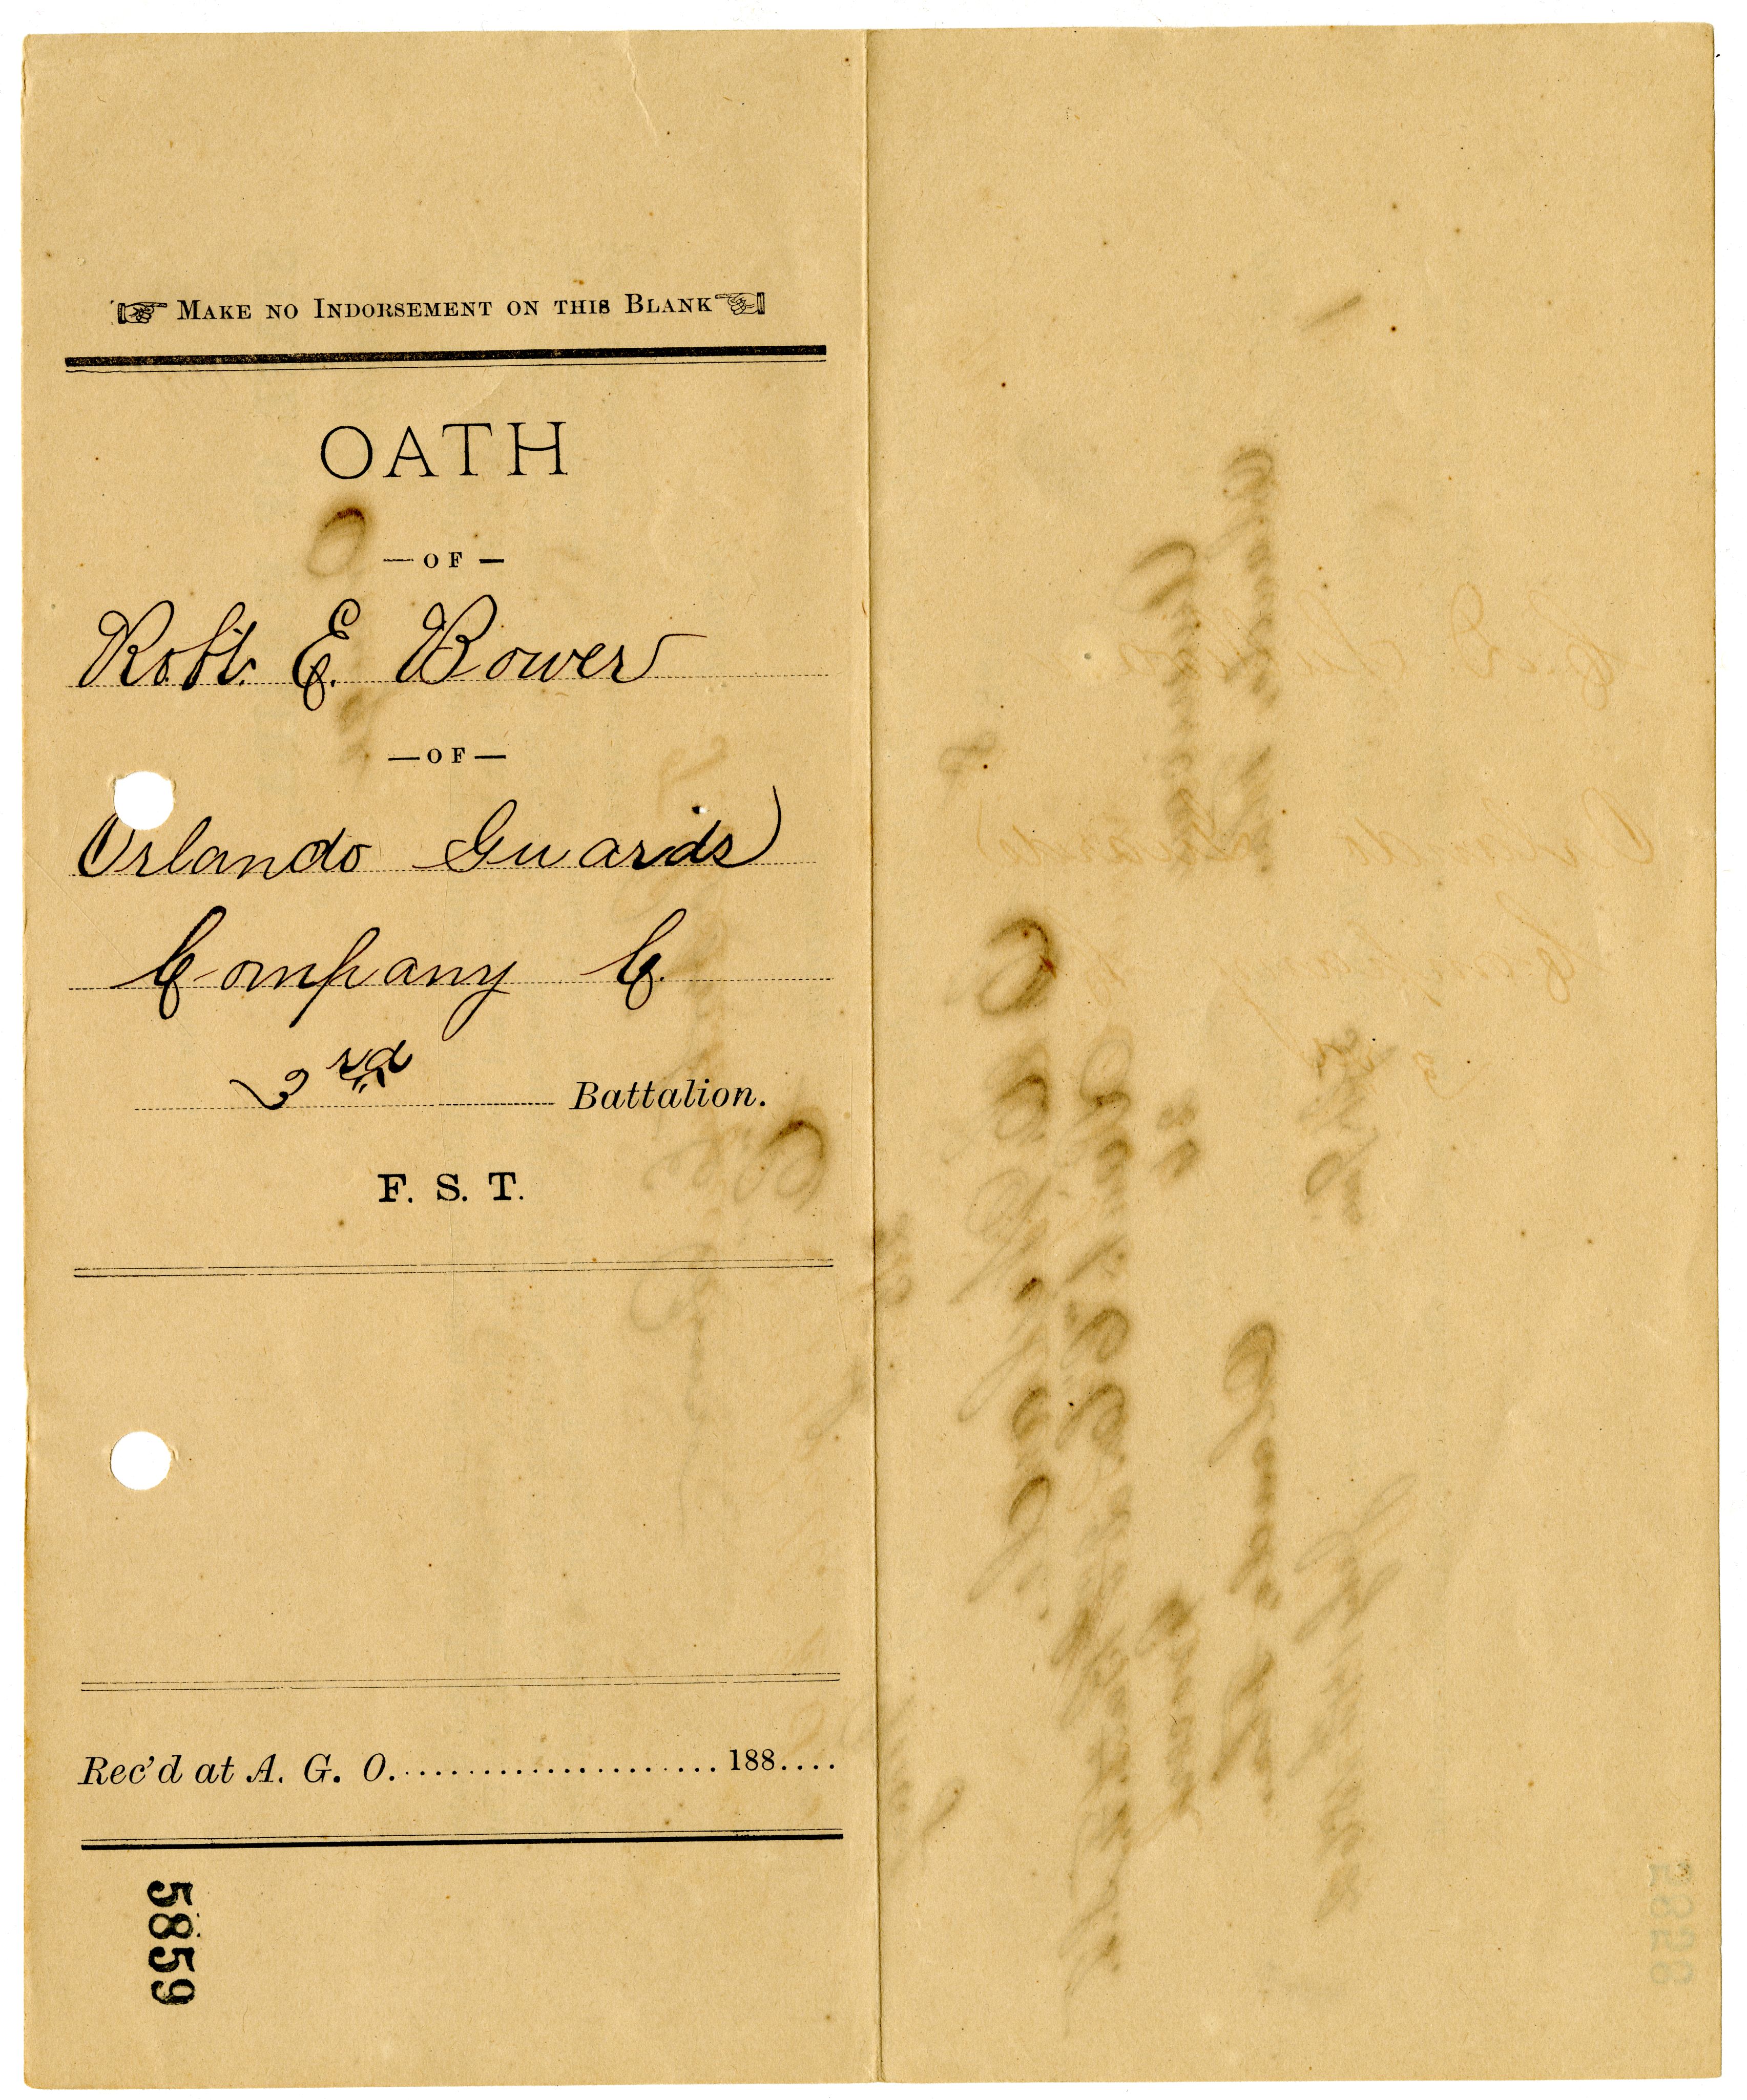 ☞ MAKE NO INDORSEMENT ON THIS BLANK ☜
OATH
— OF —
Robt. E. Bower
— OF —
Orlando Guards
Company C.
3rd Battalion.
F. S. T.
Rec'd at A. G. O. ..................... 188....
5859